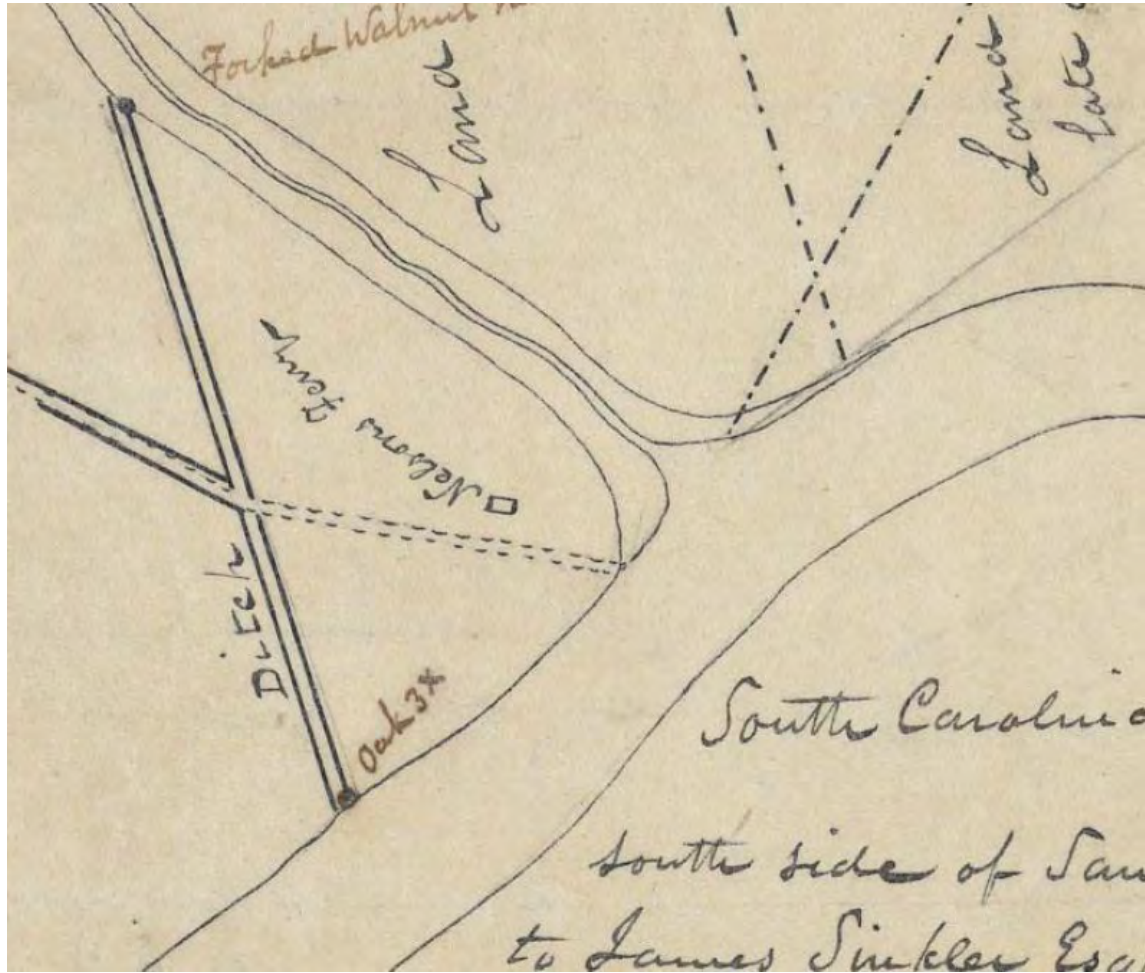 Forked Walnut
Land
Land
late
Nelsons Ferry
Ditch
Oak 3x
South Carolina
south side of San
to James Sinkler Esq